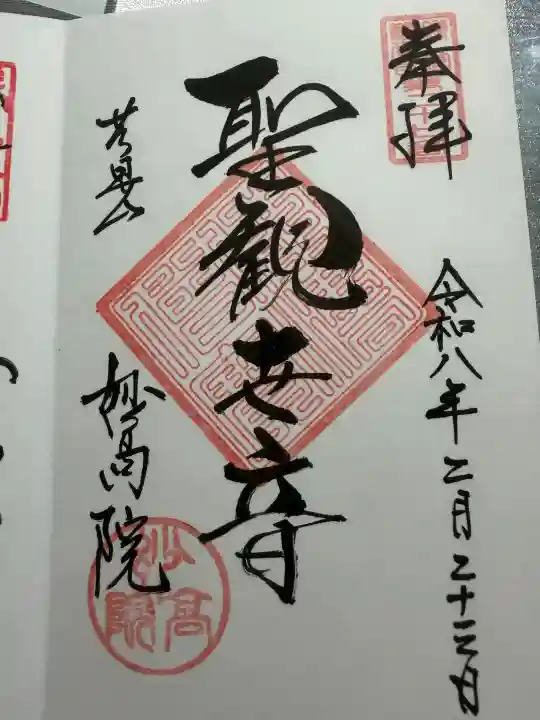 奉拝
令和八年二月二十三日
聖観世音
妙高院
妙高院